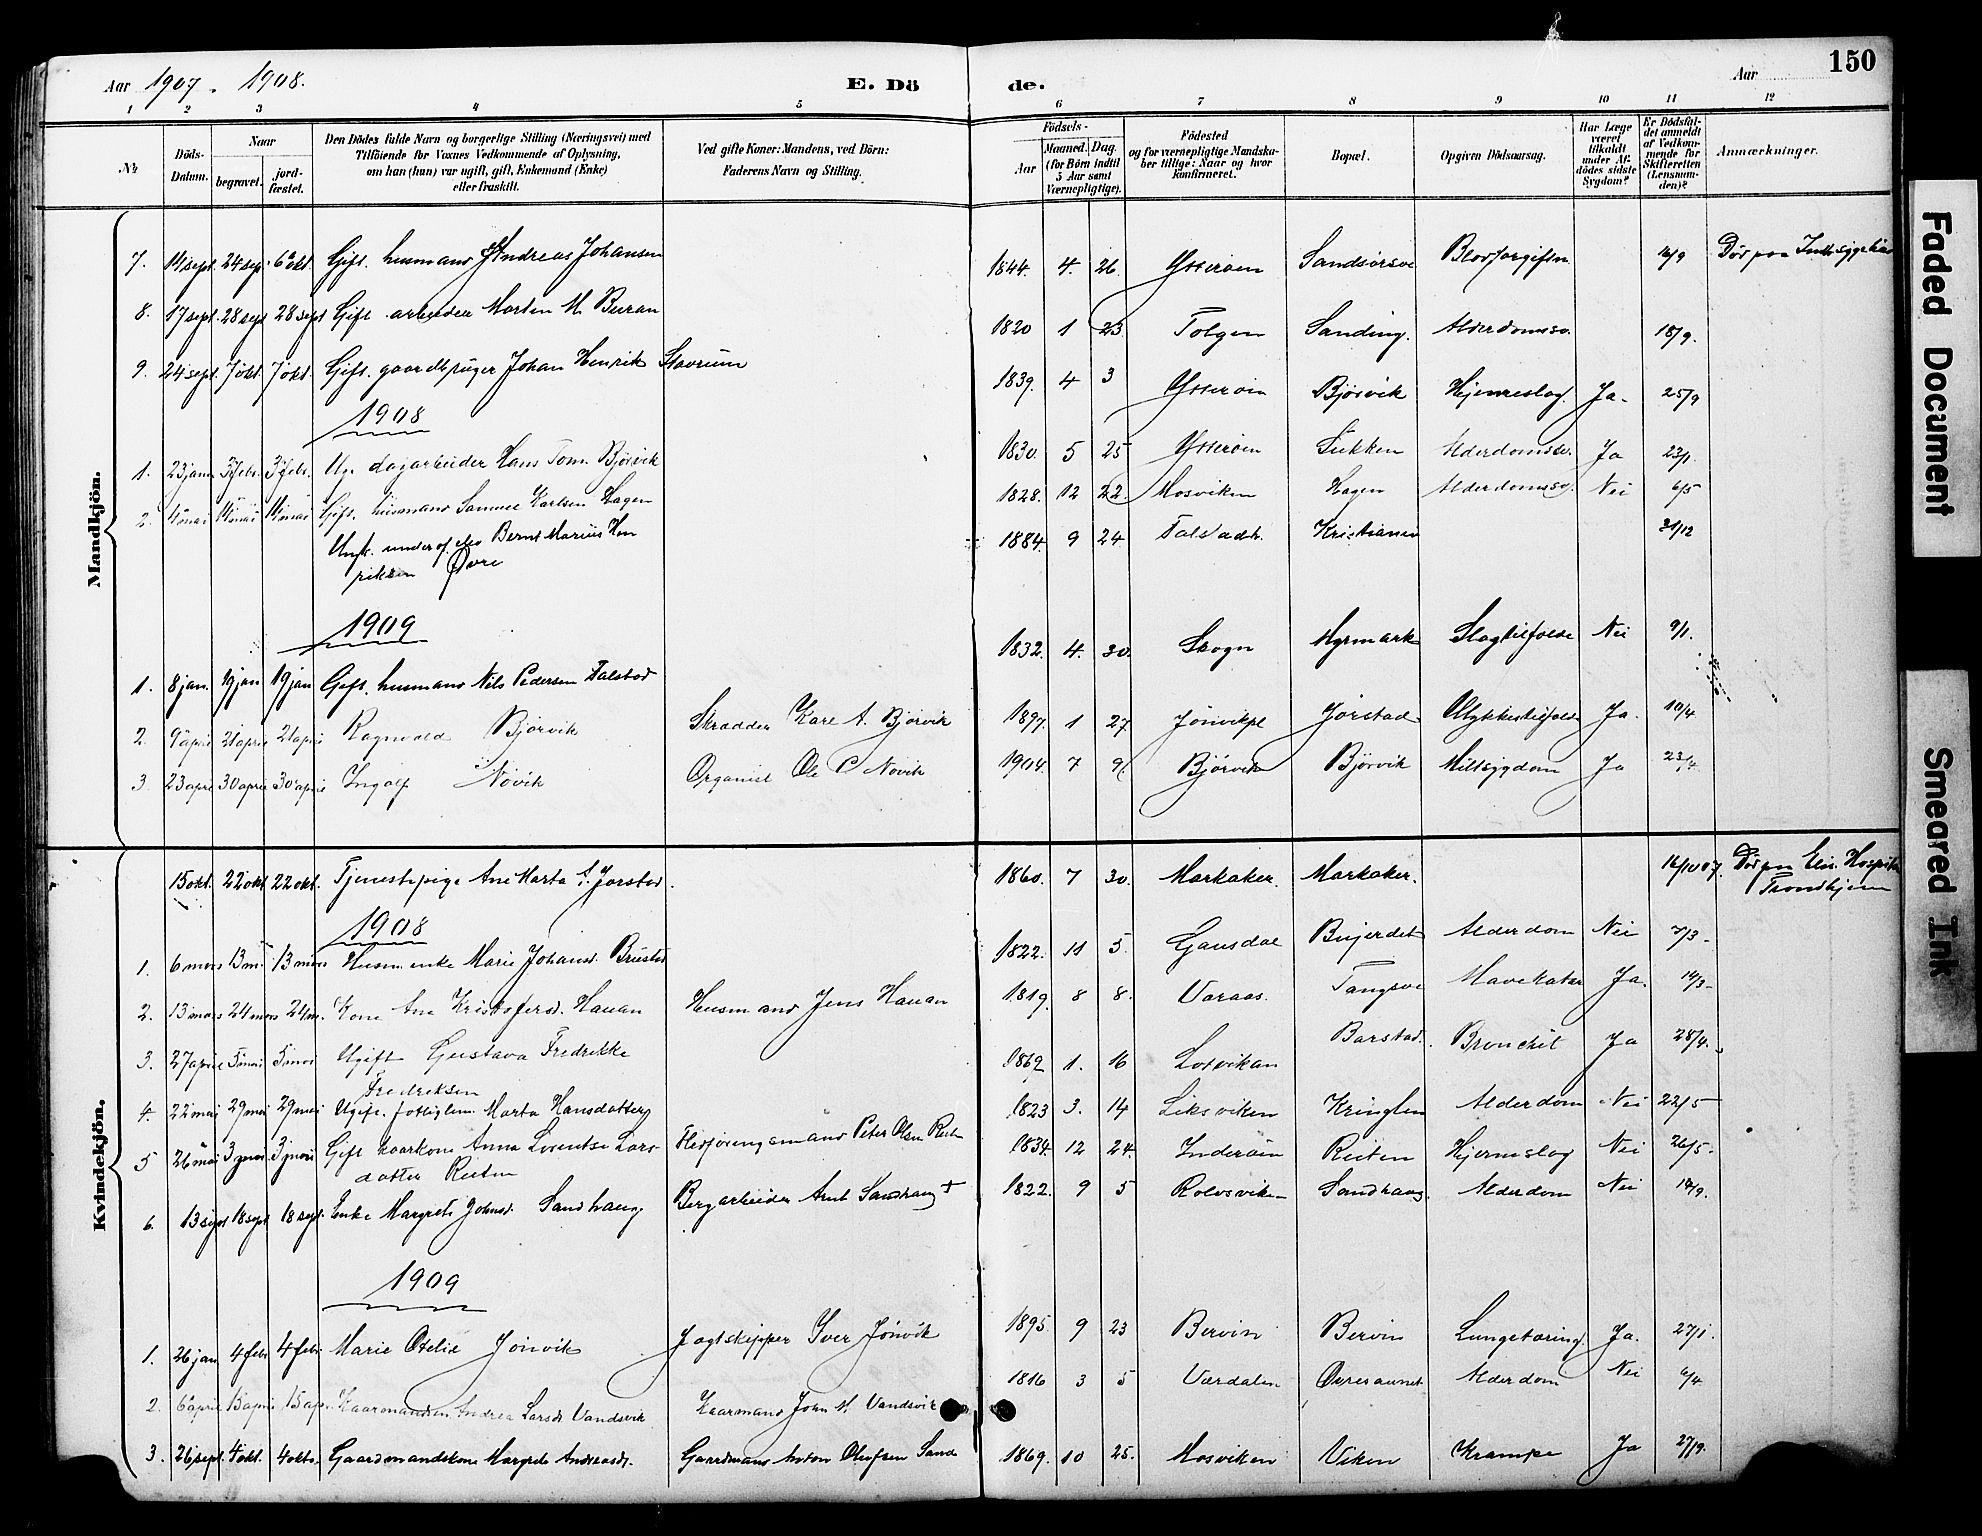 Aar 1907 - 1908. E. Dö de. Aar 150
1 2 3 4 5 6 7 8 9 10 11 12
No. Döds-Datum. Naar begravet. jordfæstet. Den Dödes fulde Navn og borgerlige Stilling (Næringsvei) med Tilföiende for Voxnes Vedkommende af Oplysning, om han (hun) var ugift, gift, Enkemand (Enke) eller fraskilt. Ved gifte Koner: Mandens, ved Börn: Faderens Navn og Stilling. Födsels- Aar Maaned. Dag. (for Börn indtil 5 Aar samt Værnepligtige). Födested og for værnepligtige Mandskaber tillige: Naar og hvor konfirmeret. Bopæl. Opgiven Dödsaarsag. Har Læge været tilkaldt under Afdödes sidste Sygdom? Er Dödsfaldet anmeldt af Vedkommende for Skifteretten (Lensmanden)? Anmærkninger.
Mandkjön.
7. 14 sept. 24 sep. 6 okt. Gift. husmand Andreas Johansen 1844. 4. 26. Ytterøen Sandsørsve Blodforgiftn. 16/9 Død paa
8. 17 sept. 28 sept 28 sept Gift. arbeider Morten M. Buran 1820 1 23 Tolgen Sanding. Alderdomssv. 18/9.
9. 24 sept. 7 okt. 7 okt. Gift. gaardbruger Johan Henrik Stavrum 1839. 4 3 Ytterøen Bjørvik Hjerneslag. Ja. 25/9
1908
1. 23 jan 3 febr. 3 febr. Ug. dagarbeider Hans Tom. Bjørvik 1830. 5 25 Ytterøen Lukken Alderdomssv. Ja 23/1.
2. 4 mai 14 mai 14 mai Gift. husmand Samuel Karlsen Hagen 1828. 12 22. Mosviken Hagen Alderdomssv. Nei 6/5
Unft. underof. elev Bernt Marius Hen
riksen Øvre 1884. 9 24 Falstadh. Kristiania 31/12
1909
1. 8 jan. 19 jan 19 jan Gift. husmand Nils Pedersen Falstad 1832. 4. 30. Skogn Myrmark Slagtilfælde Nei 9/1.
2. 9 april 21 april 21 april Ragnvald Bjørvik Skrædder Karl A. Bjørvik 1897. 1 27. Jønvikpl Jørstad Ulykkestilfælde Ja. 10/4
3. 23 april 30 april 30 april Ingolf Nøvik Organist Ole P. Nøvik 1904. 7 9. Bjørvik Bjørvik Miltsygdom Ja 23/4.
Kvindekjön.
15 okt. 22 okt 22 okt. Tjenestepige Ane Marta A. Jørstad. 1860. 7 30. Markaker. Markaker. 16/10 07. Død paa Elis. Hospital
Trondhjem
1908
1. 6 mars 13 m. 13 mars Husm. enke Marie Johansd. Brustad 1822. 11 5. Gausdal Alderdom Nei 7/3.
2. 13 mars 24 mars 24 m. Kone Ane Kristofersd. Hauan Husmand Jens Hauan 1819. 8 8. Varaas. Tangsve Mavekatar Ja. 14/3.
3. 27 april 5 mai 5 mai Ugift Gustava Fredrikke
Fredriksen 1862 1. 16 Lorvikan Barstad. Bronchit Ja 28/4.
4. 22 mai 29 mai 29 mai Ugift. fattiglem Marta Hansdatter 1823 3. 14 Leksviken Kringlen Alderdom Nei 22/5
5 26 mai 3 juni 3 juni Gift kaarkone Anna Lorentse Lars
datter Reiten Flodføringsmand Peter Olsen Reiten 1834. 12 24. Inderøen Reiten Hjerneslag Nei 26/5.
6. 13 sept 18 sept 18 sept. Enke Margrete Johnsd. Sandhaug Bergarbeider Arnt Sandhaug + 1822. 9 5 Rolvsviken Sandhaug. Alderdom Nei 14/9.
1909
1. 26 jan 4 febr 4 febr. Marie Otelie Jønvik Jagtskipper Iver Jønvik 1895. 9 23 Bervin Bervin Lungetæring Ja. 27/1.
2. 6 april 15 april 15 apr. Kaarmandsen. Andrea Larsd. Vandsvik Kaarmand John M. Vandsvik 1816 3 5 Værdalen Overaunet Alderdom Nei 6/4
3. 26 sept. 4 okt. 4 okto. Gaardmandskone Margrete Andreasd. Gaardmand Anton Olufsen Sand 1869. 10 25. Mosviken Viken Krampe Ja 27/9.
Faded Document
Smeared Ink